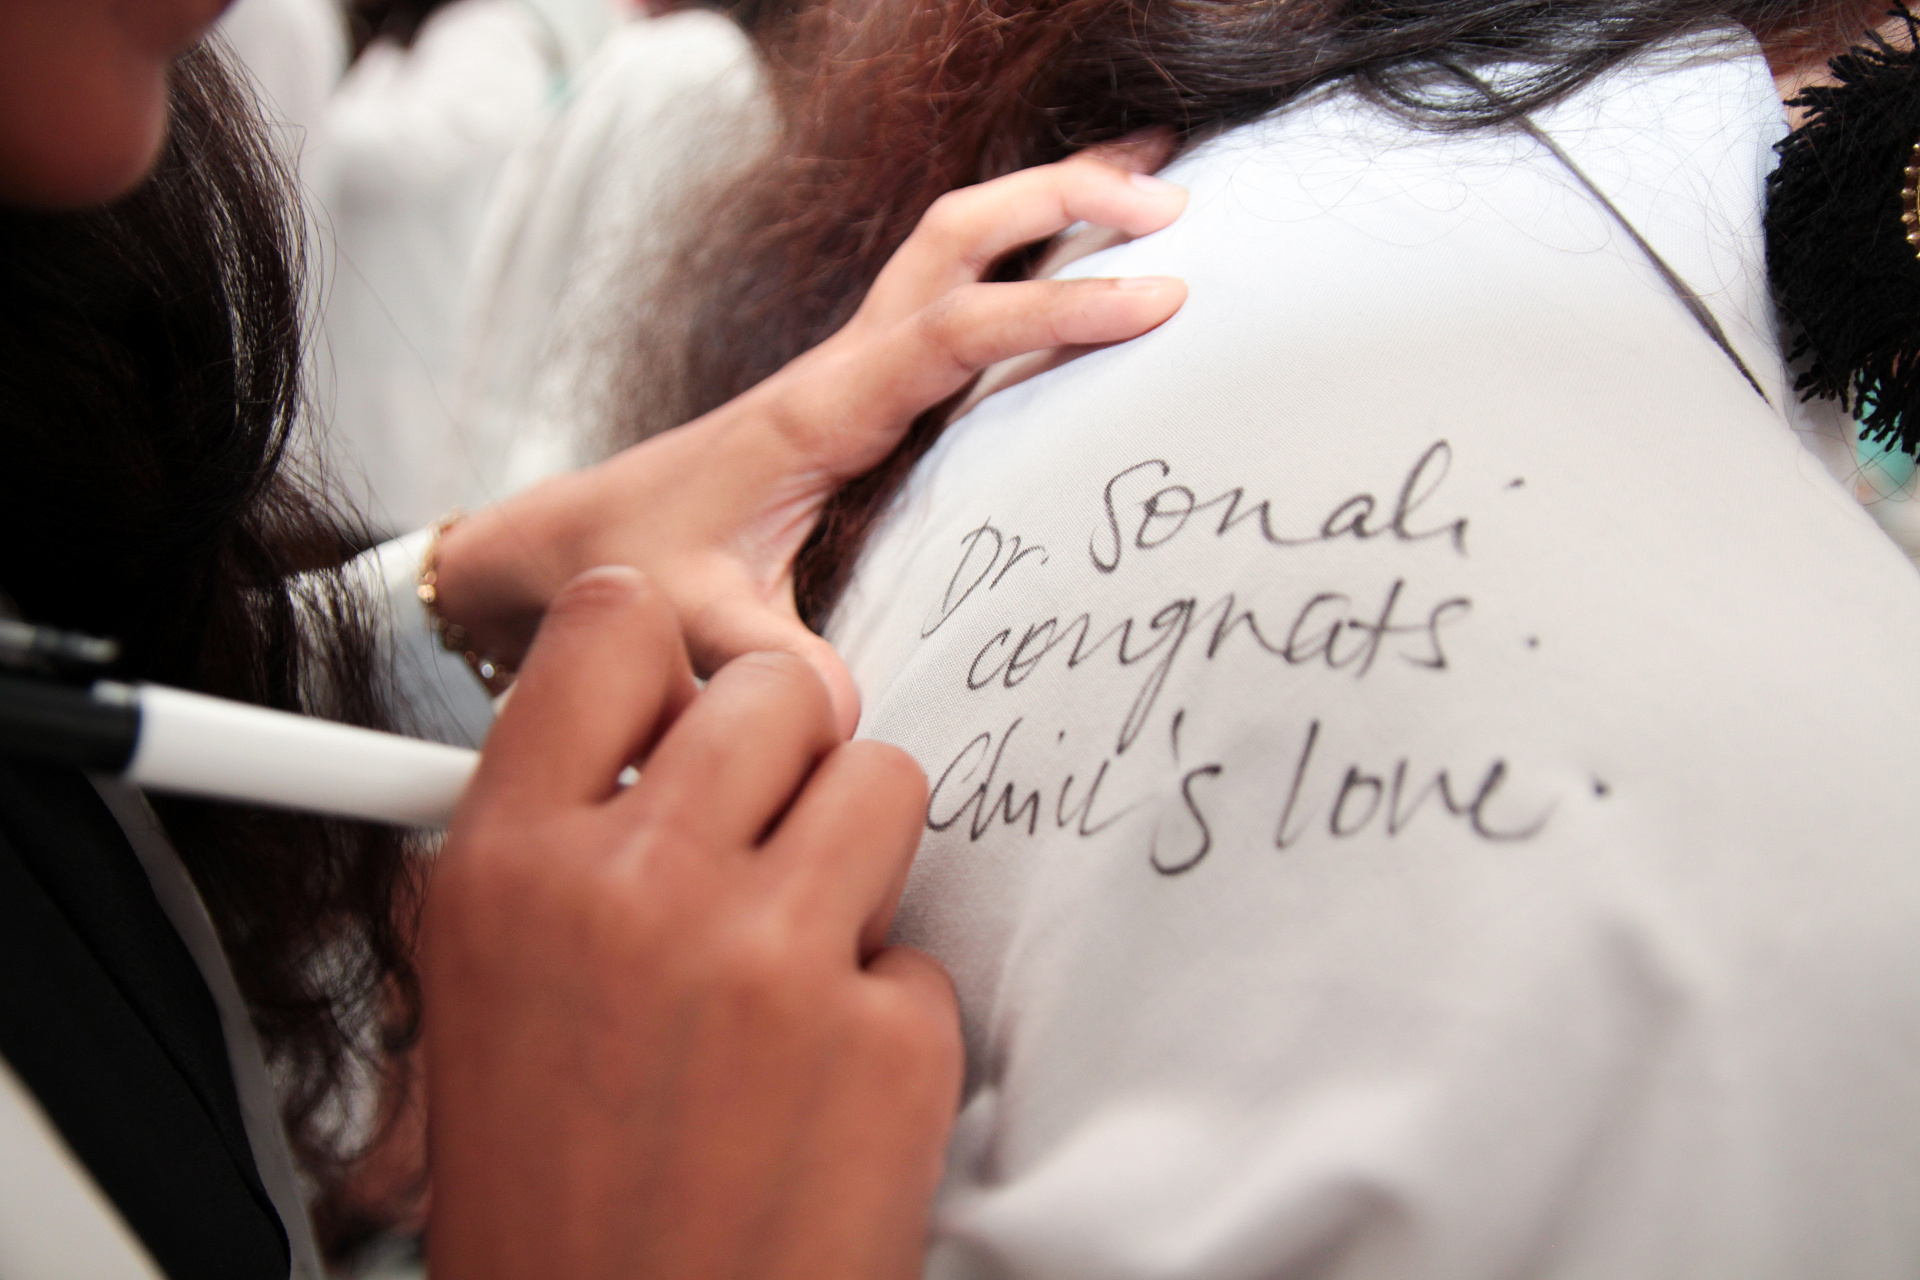 Dr. Sonali
congrats.
's love.